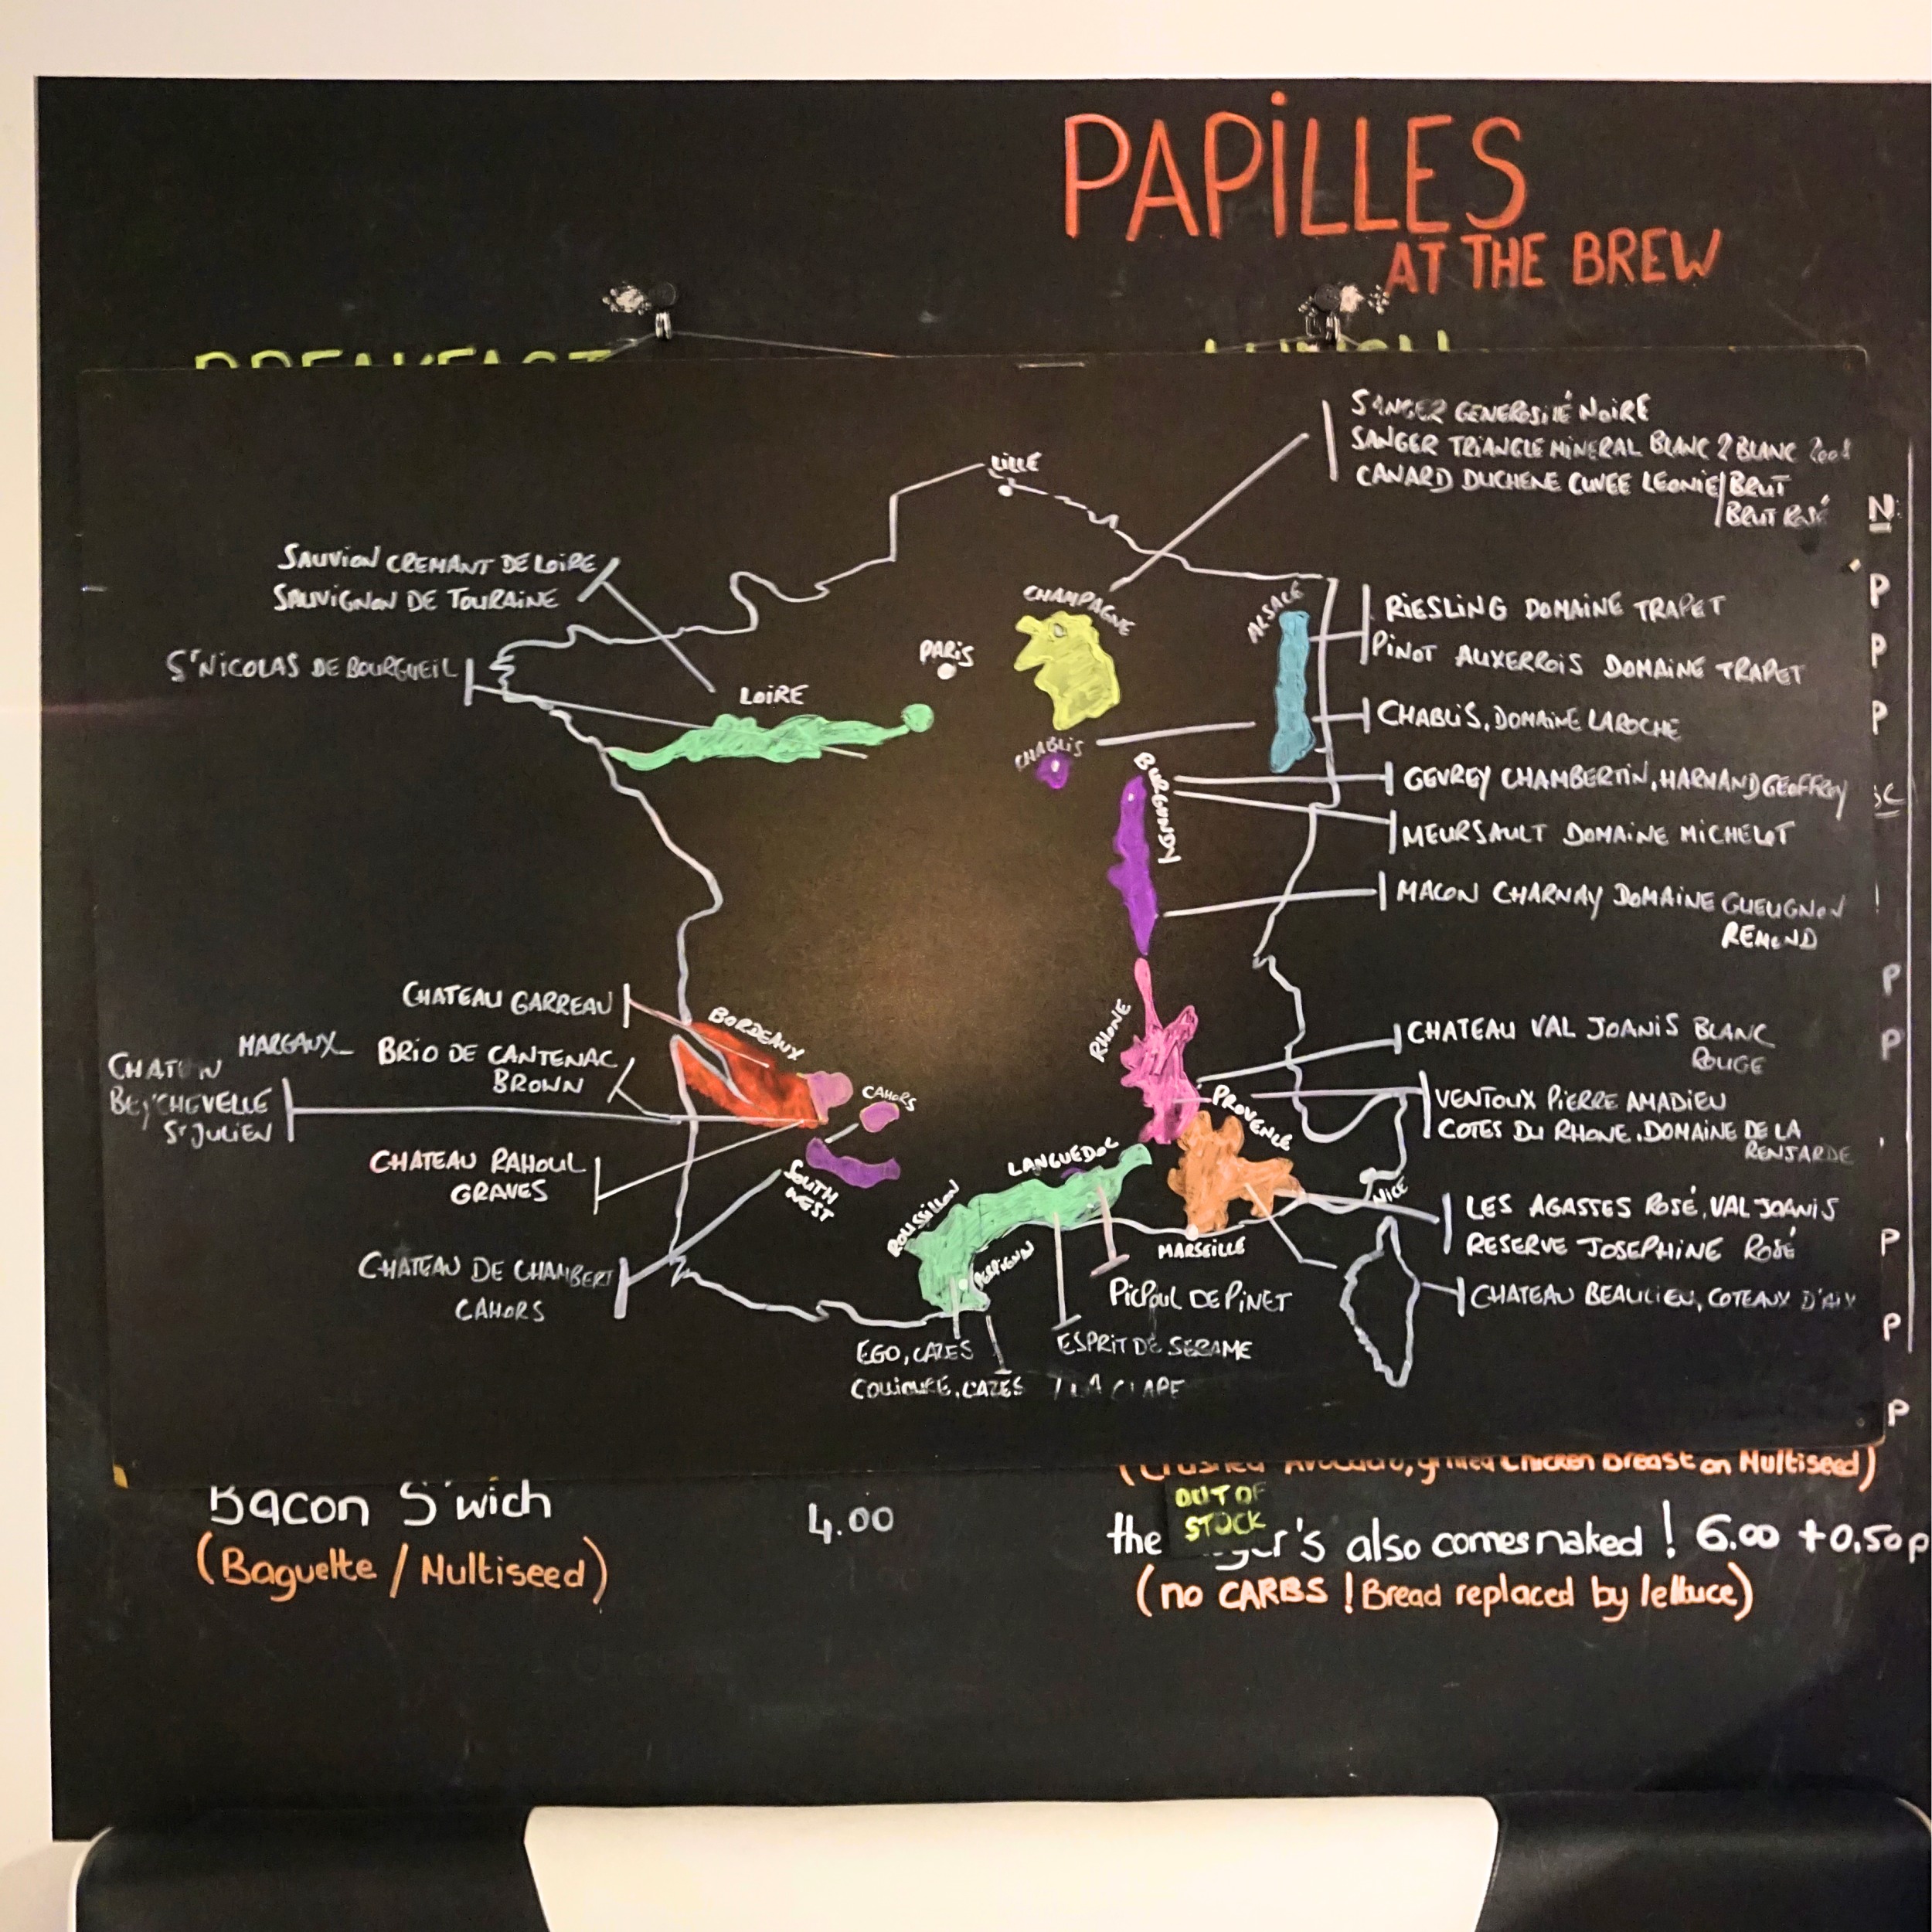 PAPILLES
AT THE BREW
BREAKFAST
LUNCH
SANGER GENEROSITÉ NOIRE
SANGER TRIANGLE MINERAL BLANC 2 BLANC 2008
CANARD DUCHENE CUVEE LEONIE/BRUT
BRUT ROSÉ
LILLE
N
SAUVION CREMANT DE LOIRE
SAUVIGNON DE TOURAINE
CHAMPAGNE
ALSACE
P
RIESLING DOMAINE TRAPET
PINOT AUXERROIS DOMAINE TRAPET
P
ST NICOLAS DE BOURGUEIL
PARIS
LOIRE
CHABLIS, DOMAINE LAROCHE
P
CHABLIS
BURGUNDY
GEVREY CHAMBERTIN, HARMAND GEOFFROY
MEURSAULT DOMAINE MICHELOT
MACON CHARNAY DOMAINE GUEUGNON
REMOND
P
CHATEAU GARREAU
BORDEAUX
RHONE
CHATEAU VAL JOANIS BLANC
ROUGE
P
MARGAUX_ BRIO DE CANTENAC
BROWN
CHATEAU
BEYCHEVELLE
ST JULIEN
CAHORS
PROVENCE
VENTOUX PIERRE AMADIEU
COTES DU RHONE, DOMAINE DE LA
RENJARDE
CHATEAU RAHOUL
GRAVES
SOUTH
WEST
LANGUEDOC
ROUSSILLON
NICE
LES AGASSES ROSÉ, VAL JOANIS
RESERVE JOSEPHINE ROSÉ
P
MARSEILLE
PERPIGNAN
CHATEAU DE CHAMBERT
CAHORS
PICPOUL DE PINET
CHATEAU BEAULIEU, COTEAUX D'AIX
P
EGO, CAZES
ESPRIT DE SERAME
COLLIOURE, CAZES
/ LA CLAPE
P
(Crushed Avocado, grilled Chicken Breast on Multiseed)
Bacon S'wich 4.00
(Baguette / Multiseed)
OUT OF
STOCK
the
's also comes naked ! 6.00 +0.50p
(no CARBS ! Bread replaced by lettuce)